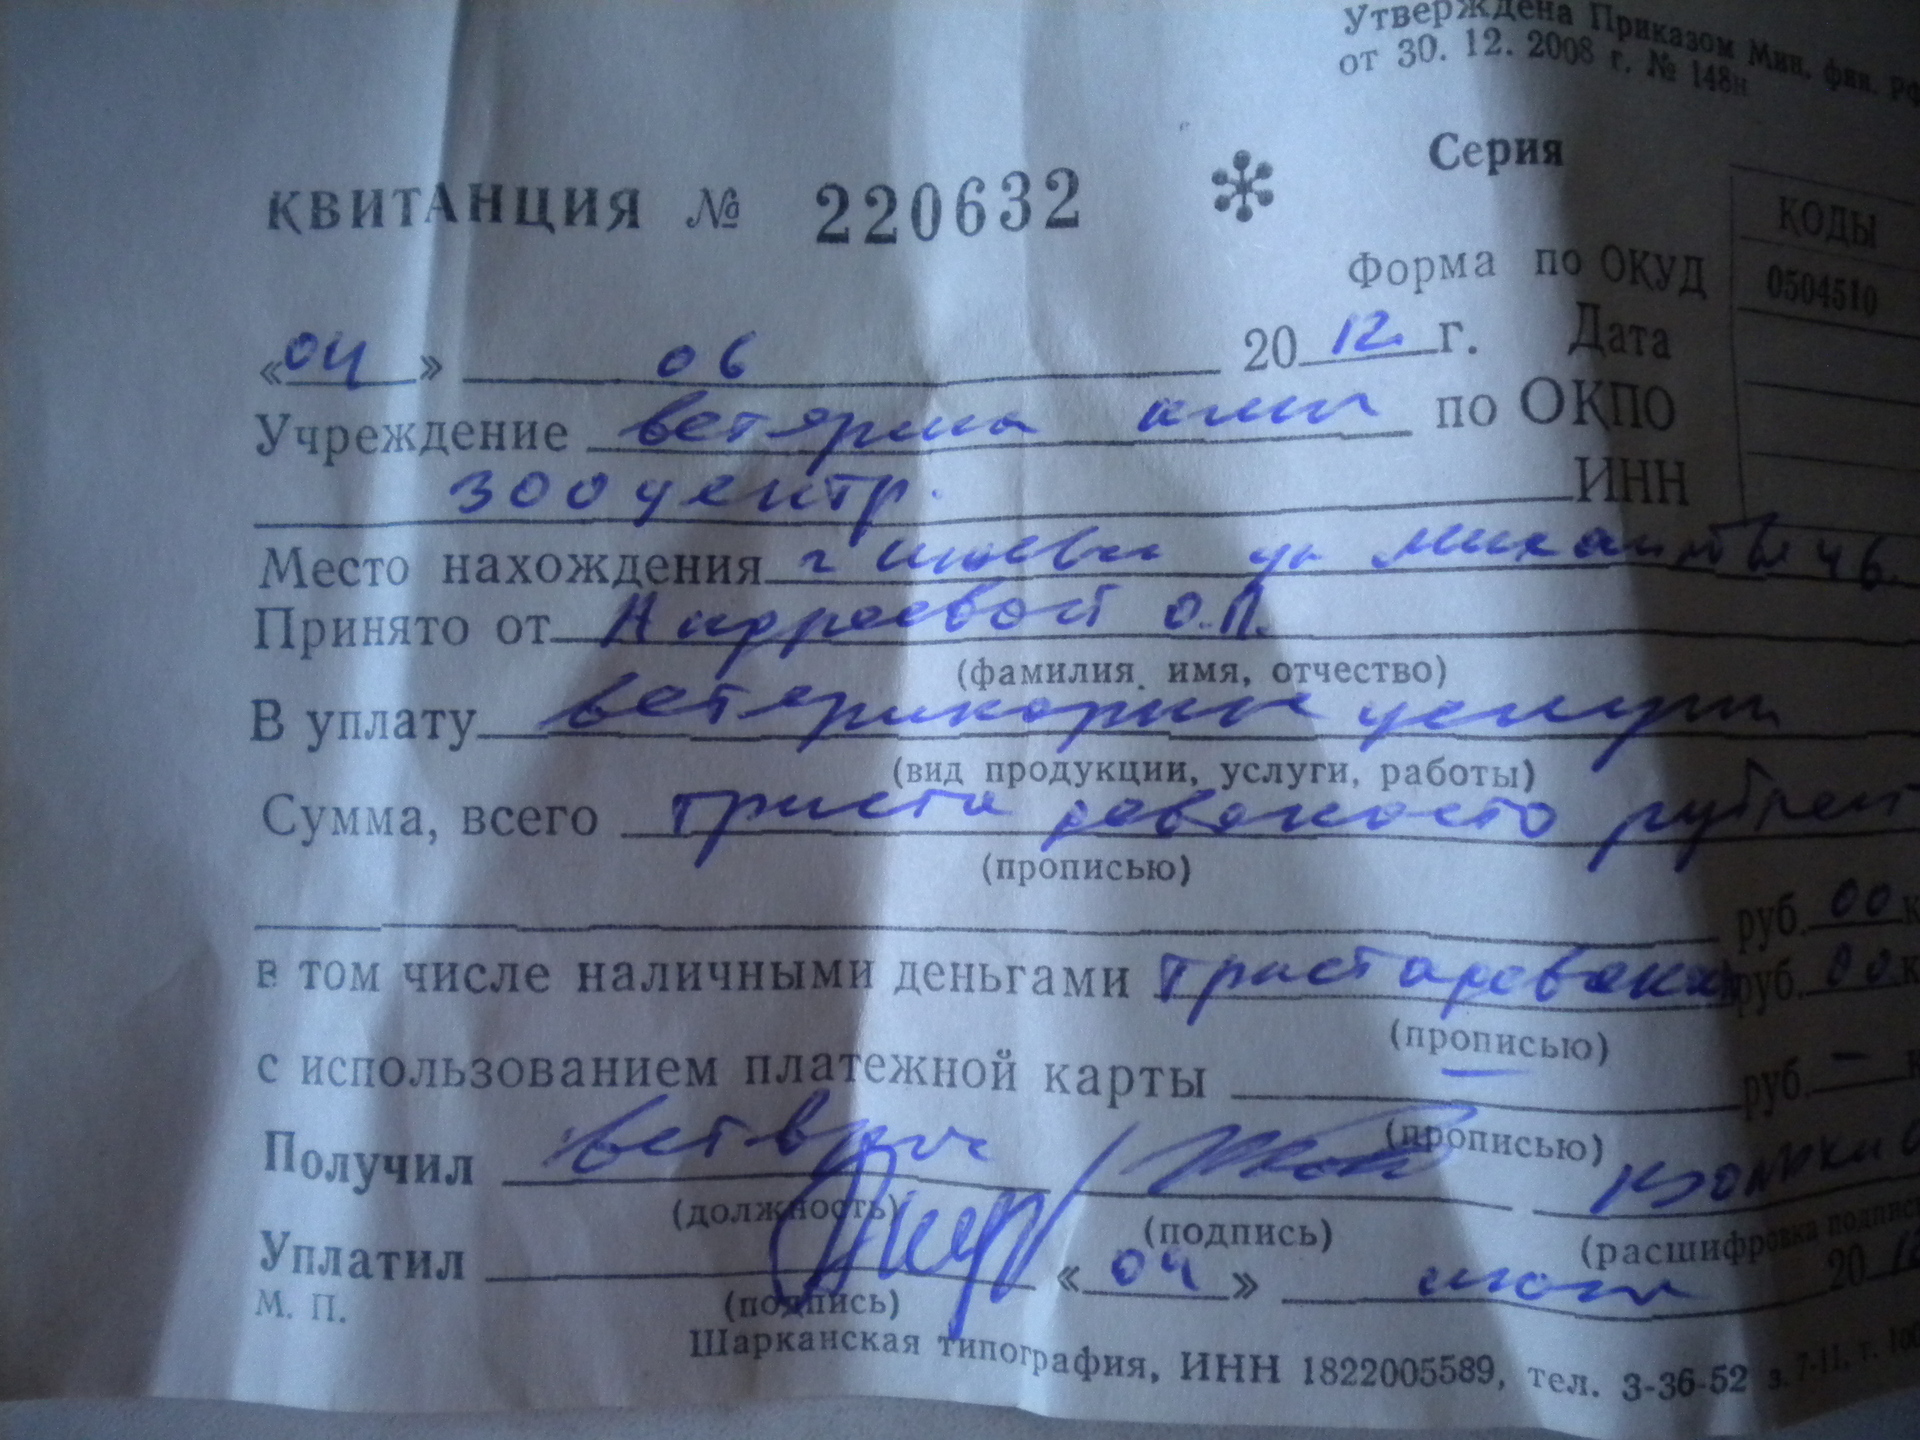 Утверждена Приказом Мин. фин. РФ
от 30. 12. 2008 г. № 148н
Серия
КВИТАНЦИЯ № 220632
КОДЫ
Форма по ОКУД 0504510
«04» 06 2012 г. Дата
Учреждение по ОКПО
зооцентр. ИНН
Место нахождения г ул
Принято от О.П.
(фамилия, имя, отчество)
В уплату услуги
(вид продукции, услуги, работы)
Сумма, всего триста девяносто рублей
(прописью)
руб. 00 к
в том числе наличными деньгами руб. 00 к
(прописью)
с использованием платежной карты — руб. — к
(прописью)
Получил ветврач
(должность) (подпись) (расшифровка подписи
Уплатил «04» 20
М. П. (подпись)
Шарканская типография, ИНН 1822005589, тел. 3-36-52 з. 7-11, т.